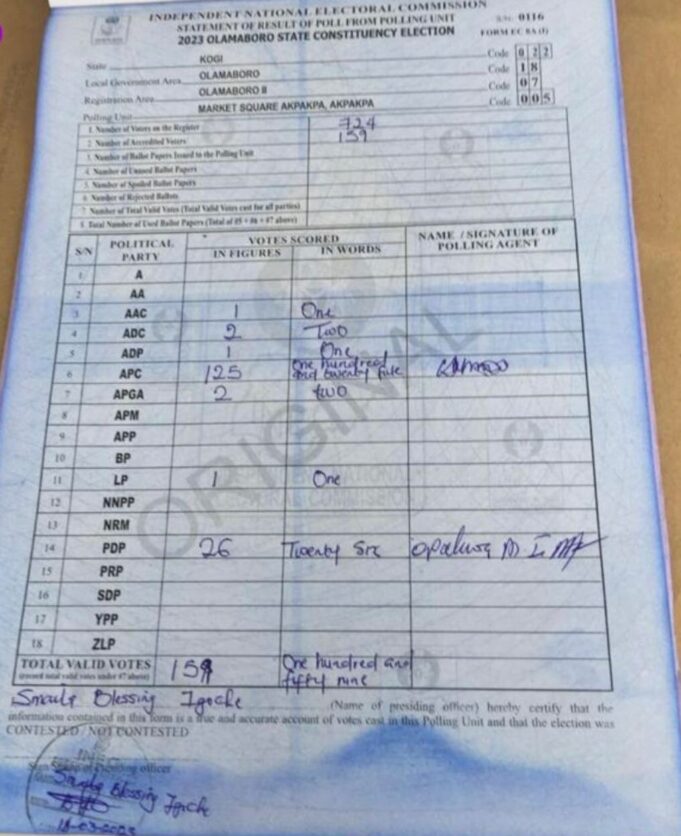 INDEPENDENT NATIONAL ELECTORAL COMMISSION
STATEMENT OF RESULT OF POLL FROM POLLING UNIT
S/N: 0116
2023 OLAMABORO STATE CONSTITUENCY ELECTION
FORM EC 8A (I)
State KOGI Code 0 2 2
Local Government Area OLAMABORO Code 1 8
Registration Area OLAMABORO II Code 0 7
Polling Unit MARKET SQUARE AKPAKPA, AKPAKPA Code 0 0 5
1. Number of Voters on the Register 724
2. Number of Accredited Voters 159
3. Number of Ballot Papers Issued to the Polling Unit
4. Number of Unused Ballot Papers
5. Number of Spoiled Ballot Papers
6. Number of Rejected Ballots
7. Number of Total Valid Votes (Total Valid Votes cast for all parties)
8. Total Number of Used Ballot Papers (Total of #5 + #6 + #7 above)
S/N POLITICAL PARTY VOTES SCORED NAME / SIGNATURE OF POLLING AGENT
IN FIGURES IN WORDS
1 A
2 AA
3 AAC 1 One
4 ADC 2 Two
5 ADP 1 One
6 APC 125 One hundred and twenty five
7 APGA 2 two
8 APM
9 APP
10 BP
11 LP 1 One
12 NNPP
13 NRM
14 PDP 26 Twenty Six
15 PRP
16 SDP
17 YPP
18 ZLP
ORIGINAL
TOTAL VALID VOTES 159 One hundred and fifty nine
(record total valid votes under #7 above)
Blessing (Name of presiding officer) hereby certify that the
information contained in this form is a true and accurate account of votes cast in this Polling Unit and that the election was
CONTESTED / NOT CONTESTED
INEC
Presiding officer
Blessing